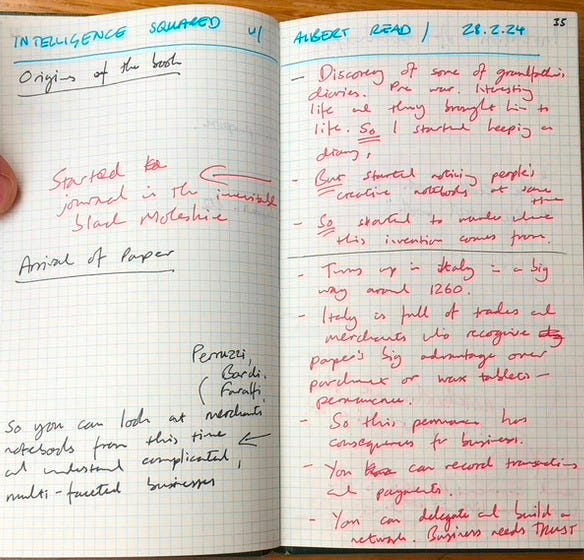 INTELLIGENCE SQUARED w/
Origins of the book
Started
journal in the inevitable
black Moleskine
Arrival of Paper
Perruzzi,
Bardi,
So you can look at merchants
notebooks from this time
and understand complicated,
multi-faceted businesses
ALBERT READ / 28.2.24
35
- Discovery of some of grandfather's
diaries. Pre war. Interesting
life and they brought him to
life. So I started keeping a
diary.
- But started noticing people's
creative notebooks at same
time
- So started to wonder where
this invention comes from.
- Turns up in Italy in a big
way around 1260.
- Italy is full of trades and
merchants who recognise
paper's big advantage over
parchment or wax tablets -
permanence.
- So this permanence has
consequences for business.
- You can record transactions
and payments.
- You can delegate and build a
network. Business needs TRUST